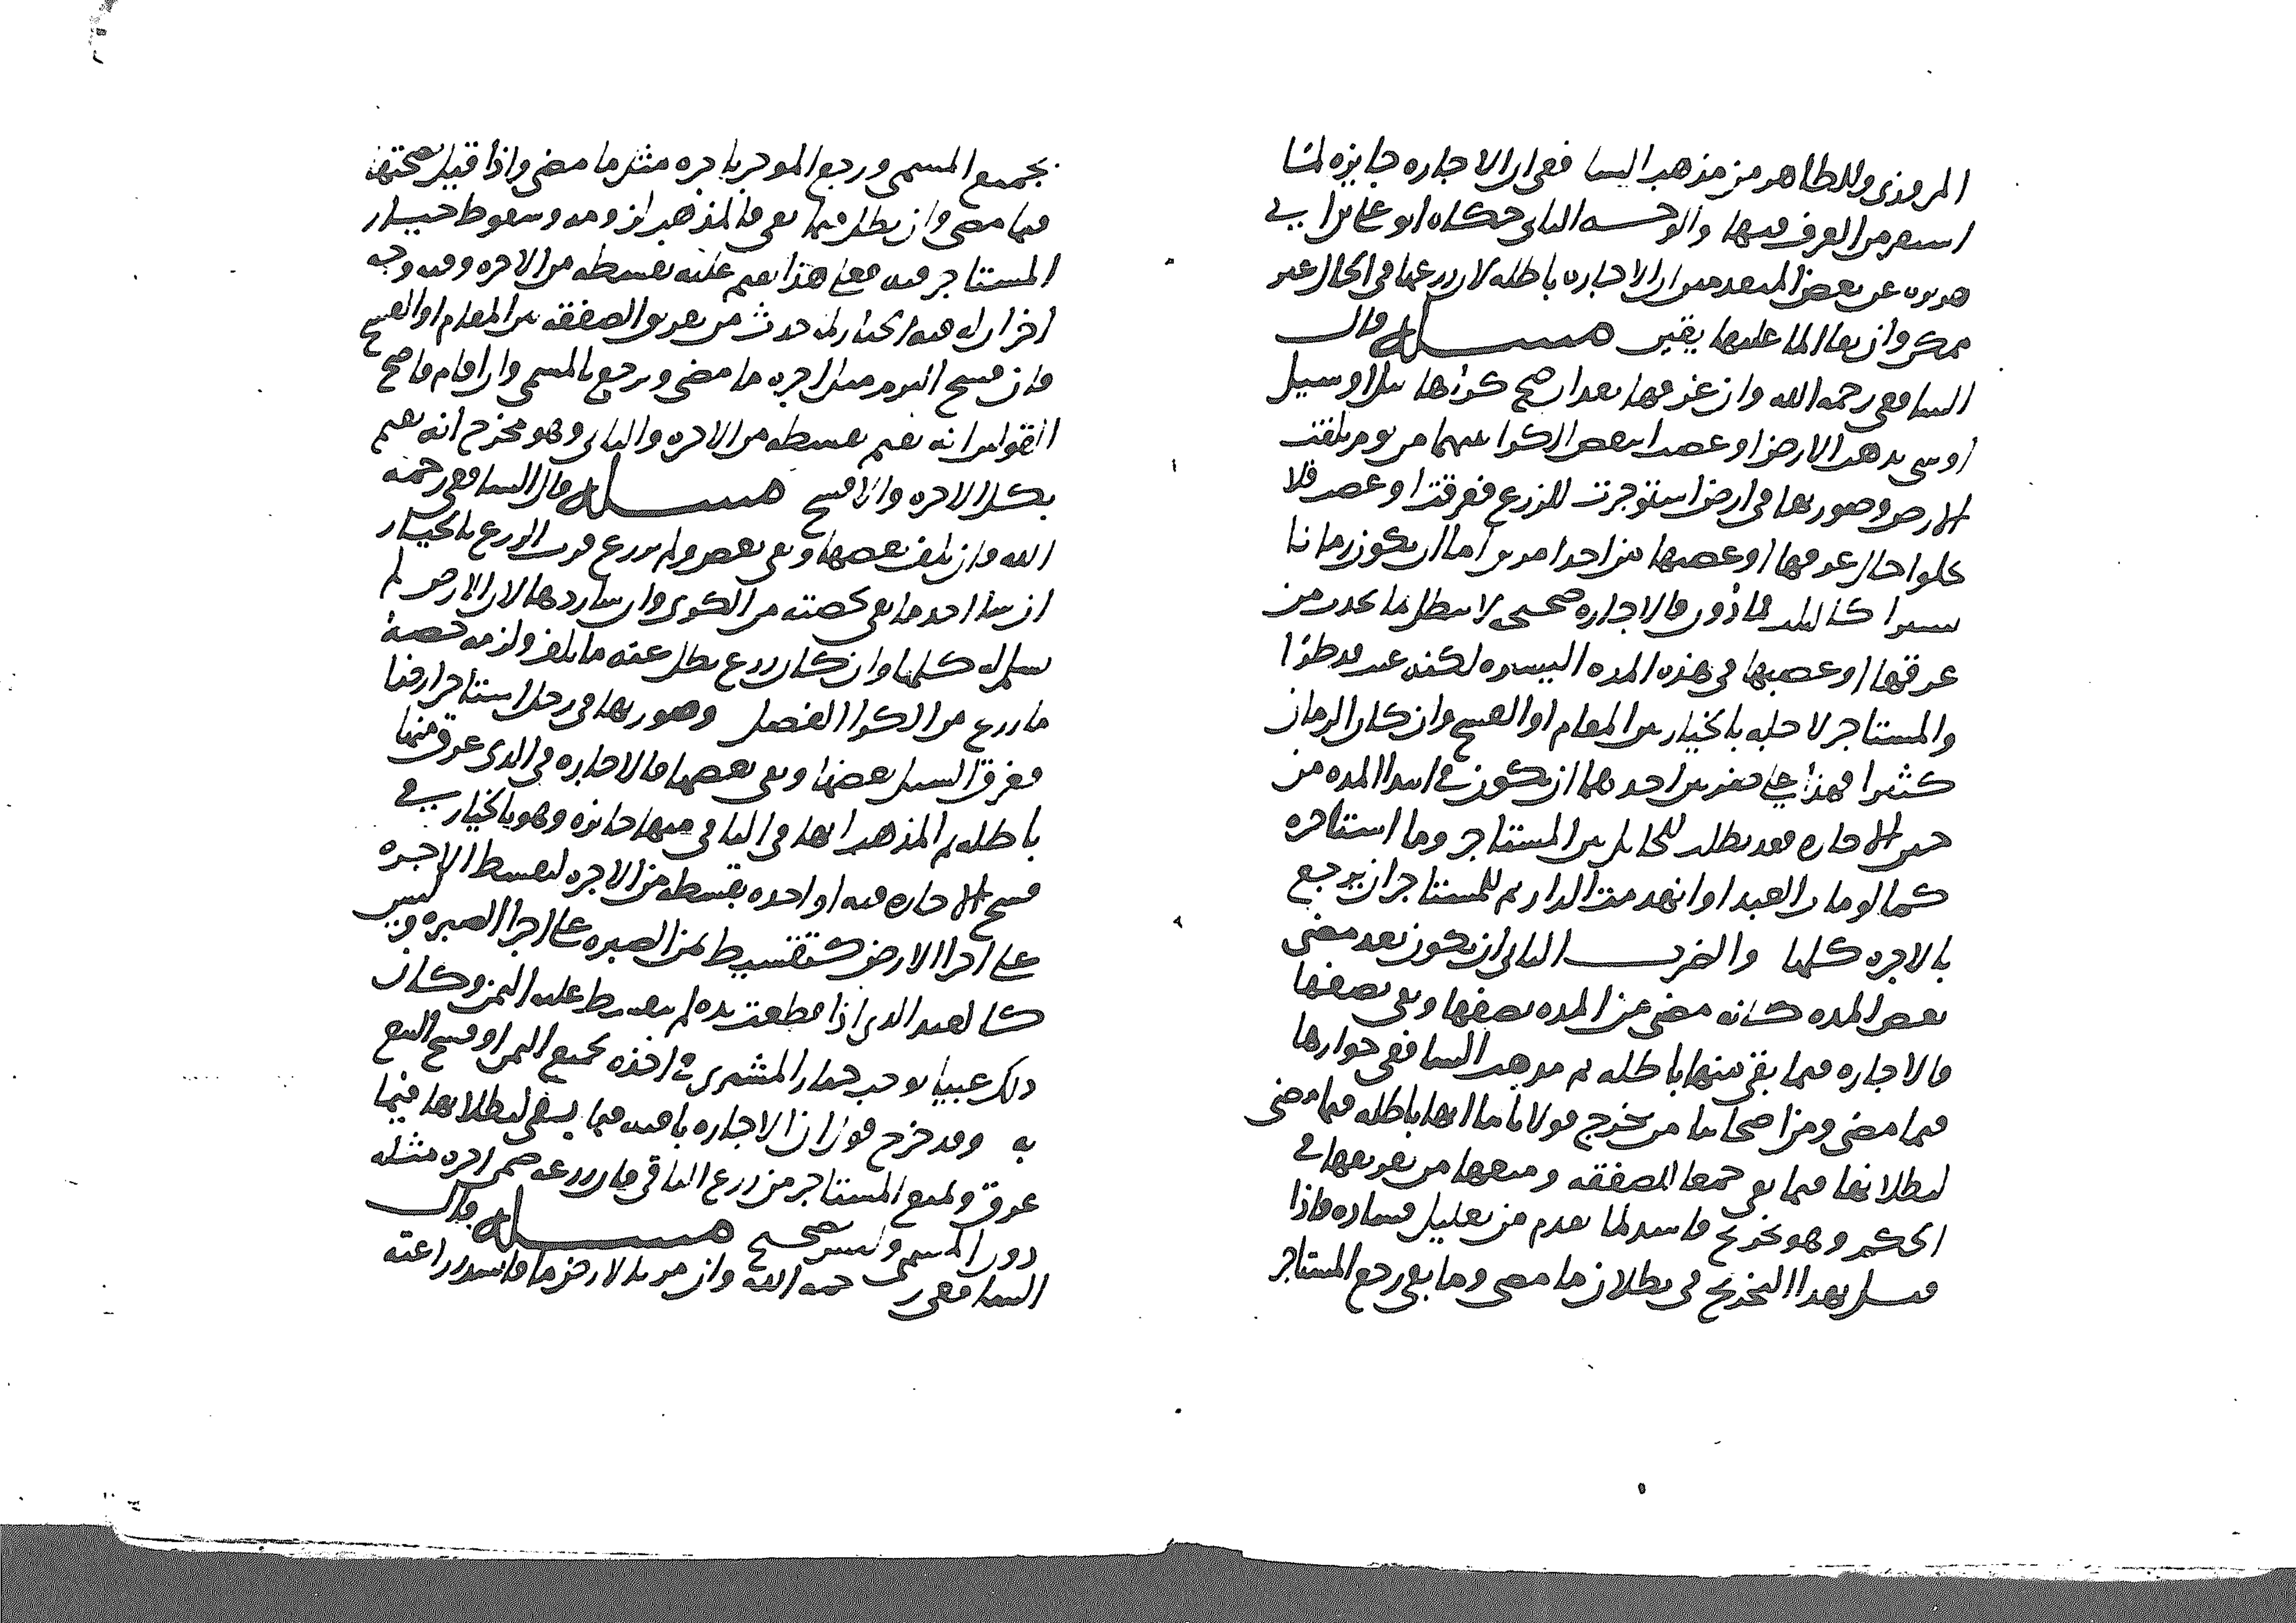 المروزي والظاهر من مذهب الشافعي ان الاجاره جايزه لما
استقر من العرف فيها والوجه الثاني حكاه ابو علي بن ابي
هريره عن بعض المتقدمين ان الاجاره باطله لان زرعها في الحال غير
ممكن وان بقا الما عليها يقين مسله قال
الشافعي رحمه الله وان غرقها بعد ان صح كراها نيل او سيل
او شي يذهب الارض او غصبت انتقض الكرا بينهما من يوم تلفت
الارض وصورتها في ارض استوجرت للزرع فغرقت او غصبت فلا
يخلوا حال غرقها او غصبها من احد امرين اما ان يكون زمانا
يسيرا فالاجاره صحيحه لا تبطل بما يحدث من
غرقها او غصبها في هذه المده اليسيره لكنه عيب قد طرا
والمستاجر لاجله بالخيار بين المقام او الفسخ وان كان الزمان
كثيرا فهذا على ضربين احدهما ان يكون في ابتدا المده من
حين الاجاره فقد بطلت للحايل بين المستاجر وما استاجره
كما لو مات العبد او انهدمت الدار ثم للمستاجر ان يرجع
بالاجره كلها والضرب الثاني ان يكون بعد مضي
بعض المده كانه مضى من المده نصفها وبقي نصفها
فالاجاره فيما بقي منها باطله ثم مذهب الشافعي جوازها
فيما مضى ومن اصحابنا من يخرج قولا ثانيا انها باطله فيما مضى
لبطلانها فيما بقي جمعا للصفقه ومنعها من تفريقها في
الحكم وهو تخريج فاسد لما تقدم من تعليل فساده فاذا
قيل بهذا التخريج في بطلان ما مضى وما بقي رجع المستاجر
بجميع المسمى ورجع الموجر باجره مثل ما مضى واذا قيل بصحتها
فيما مضى وان بطل فيما بقي فالمذهب لزومه وسقوط خيار
المستاجر فيه فعلى هذا يقيم عليه بقسطه من الاجره وفيه وجه
اخر ان له فيه الخيار لما حدث من تفريق الصفقه بين المقام او الفسخ
فان فسخ التزم مثل اجره ما مضى ورجع بالمسمى وان اقام فاصح
القولين انه يقيم بقسطه من الاجره والثاني وهو مخرج انه يقيم
بكل الاجره والا فسخ مسله قال الشافعي رحمه
الله وان تلف بعضها وبقي بعض ولم يزرع فرب الزرع بالخيار
ان شا اخذ ما بقي بحصته من الكرى وان شا ردها لان الارض لم
تسلم له كلها وان كان زرع بطل عنه ما تلف ولزمه حصه
ما زرع من الكرا الفصل وصورتها في رجل استاجر ارضا
فغرق السيل بعضها وبقي بعضها فالاجاره في الذي غرق منها
باطله ثم المذهب انها في الباقي منها جايزه وهو بالخيار في
فسخ الاجاره فيه او اخذه بقسطه من الاجره لتقسط الاجره
على اجزا الارض كتقسيط ثمن الصبره على اجزا الصبره وليس
كالعبد الذي اذا قطعت يده لم يتقسط عليه الثمن وكان
ذلك عيبا يوجب خيار المشتري في اخذه بجميع الثمن او فسخ البيع
به وقد خرج قول ان الاجاره باطله فيما بقي لبطلانها فيما
غرق ويمنع المستاجر من زرع الباقي فان زرعه ضمن اجره مثله
دون المسمى وليس بصحيح مسله قال
الشافعي رحمه الله وان مر بالارض ما فافسد زراعته